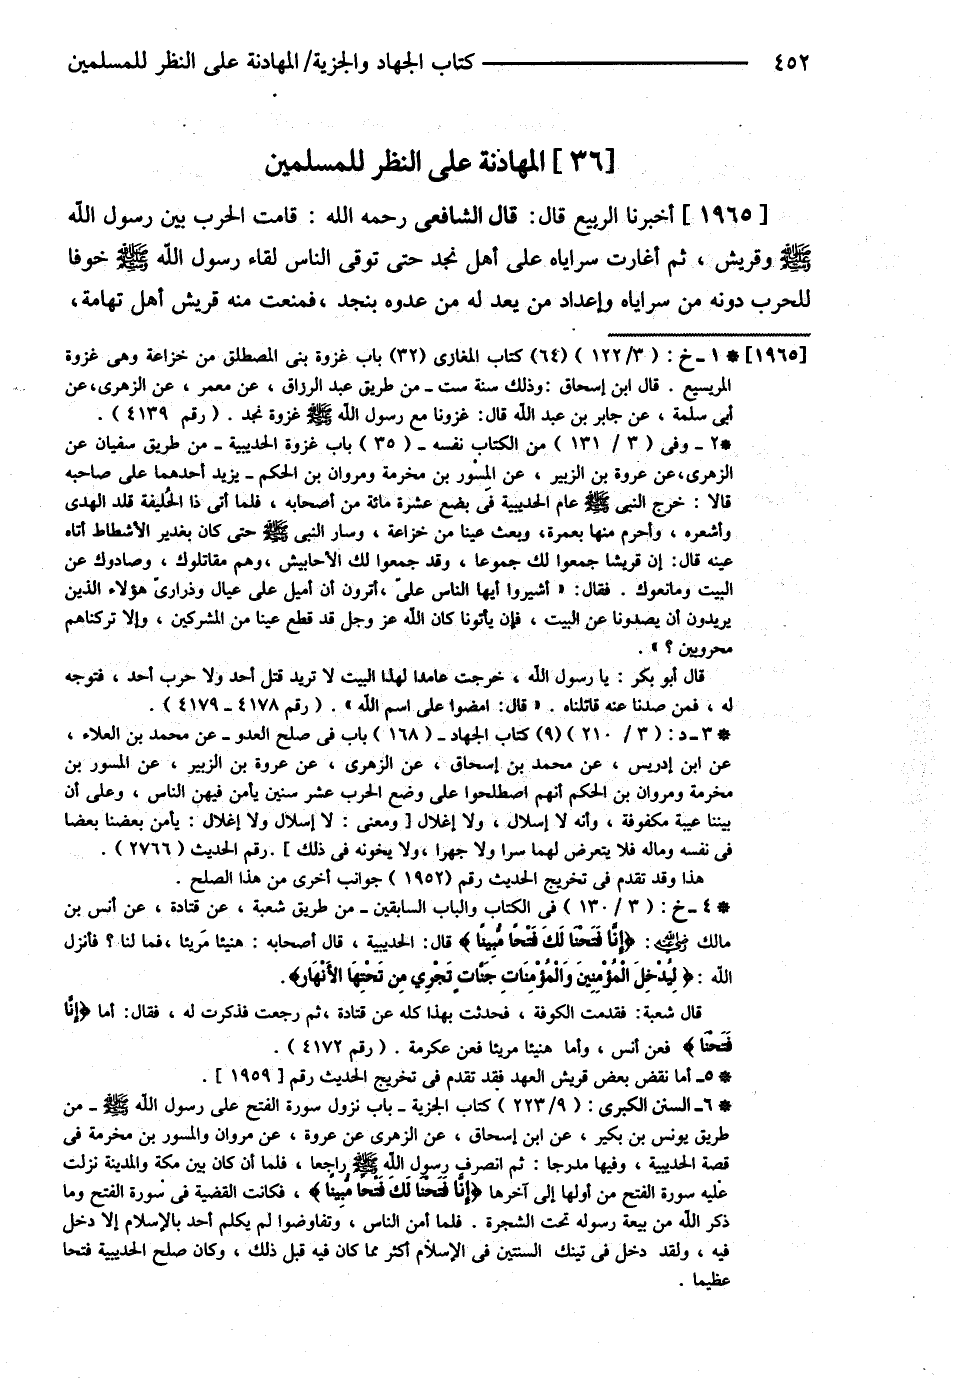 ٤٥٢ ــــــــــــــ كتاب الجهاد والجزية/ المهادنة على النظر للمسلمين
[٣٦] المهادنة على النظر للمسلمين
[١٩٦٥] أخبرنا الربيع قال: قال الشافعى رحمه الله : قامت الحرب بين رسول الله
ﷺ وقريش ، ثم أغارت سراياه على أهل نجد حتى توقى الناس لقاء رسول الله ﷺ خوفا
للحرب دونه من سراياه وإعداد من يعد له من عدوه بنجد ،فمنعت منه قريش أهل تهامة،
[١٩٦٥] * ١ـ خ : ( ٣/ ١٢٢ ) (٦٤) كتاب المغازى (٣٢) باب غزوة بنى المصطلق من خزاعة وهى غزوة
المريسيع . قال ابن إسحاق :وذلك سنة ست ـ من طريق عبد الرزاق ، عن معمر ، عن الزهرى،عن
أبى سلمة ، عن جابر بن عبد الله قال: غزونا مع رسول الله ﷺ غزوة نجد . ( رقم ٤١٣٩ ) .
*٢ ـ وفى ( ٣ / ١٣١ ) من الكتاب نفسه ـ ( ٣٥ ) باب غزوة الحديبية ـ من طريق سفيان عن
الزهرى،عن عروة بن الزبير ، عن المِسْور بن مخرمة ومروان بن الحكم ـ يزيد أحدهما على صاحبه
قالا : خرج النبى ﷺ عام الحديبية فى بضع عشرة مائة من أصحابه ، فلما أتى ذا الحُليفة قلد الهدى
وأشعره ، وأحرم منها بعمرة، وبعث عينا من خزاعة ، وسار النبى ﷺ حتى كان بغدير الأشطاط أتاه
عينه قال: إن قريشا جمعوا لك جموعا ، وقد جمعوا لك الأحابيش ،وهم مقاتلوك ، وصادوك عن
البيت ومانعوك . فقال: « أشيروا أيها الناس علىّ ،أترون أن أميل على عيال وذرارىّ هؤلاء الذين
يريدون أن يصدونا عن البيت ، فإن يأتونا كان الله عز وجل قد قطع عينا من المشركين ، وإلا تركناهم
محروبين ؟ » .
قال أبو بكر : يا رسول الله ، خرجت عامدا لهذا البيت لا تريد قتل أحد ولا حرب أحد ، فتوجه
له ، فمن صدنا عنه قاتلناه . « قال: امضوا على اسم الله » . ( رقم ٤١٧٨ ـ ٤١٧٩ ) .
* ٣ـ د: ( ٣ / ٢١٠ ) (٩) كتاب الجهاد ـ ( ١٦٨ ) باب فى صلح العدو ـ عن محمد بن العلاء ،
عن ابن إدريس ، عن محمد بن إسحاق ، عن الزهرى ، عن عروة بن الزبير ، عن المسور بن
مخرمة ومروان بن الحكم أنهم اصطلحوا على وضع الحرب عشر سنين يأمن فيهن الناس ، وعلى أن
بيننا عيبة مكفوفة ، وأنه لا إسلال ، ولا إغلال [ ومعنى : لا إسلال ولا إغلال : يأمن بعضنا بعضا
فى نفسه وماله فلا يتعرض لهما سرا ولا جهرا ،ولا يخونه فى ذلك ] .رقم الحديث ( ٢٧٦٦ ) .
هذا وقد تقدم فى تخريج الحديث رقم (١٩٥٢ ) جوانب أخرى من هذا الصلح .
* ٤ ـ خ : ( ٣ / ١٣٠ ) فى الكتاب والباب السابقين ـ من طريق شعبة ، عن قتادة ، عن أنس بن
مالك رضي الله عنه : ﴿إِنَّا فَتَحْنَا لَكَ فَتْحًا مُّبِينًا ﴾ قال: الحديبية ، قال أصحابه : هنيئا مَريئا ،فما لنا ؟ فأنزل
الله :﴿ لِيُدْخِلَ الْمُؤْمِنِينَ وَالْمُؤْمِنَاتِ جَنَّاتٍ تَجْرِي مِن تَحْتِهَا الأَنْهَار﴾.
قال شعبة: فقدمت الكوفة ، فحدثت بهذا كله عن قتادة ،ثم رجعت فذكرت له ، فقال: أما ﴿إِنَّا
فَتَحْنَا﴾ فعن أنس ، وأما هنيئا مريئا فعن عكرمة . ( رقم ٤١٧٢ ) .
* ٥ـ أما نقض بعض قريش العهد فقد تقدم فى تخريج الحديث رقم [ ١٩٥٩ ] .
* ٦ـ السنن الكبرى : ( ٩/ ٢٢٣ ) كتاب الجزية ـ باب نزول سورة الفتح على رسول الله ﷺ ـ من
طريق يونس بن بكير ، عن ابن إسحاق ، عن الزهرى عن عروة ، عن مروان والمسور بن مخرمة فى
قصة الحديبية ، وفيها مدرجا : ثم انصرف رسول الله ﷺ راجعا ، فلما أن كان بين مكة والمدينة نزلت
عليه سورة الفتح من أولها إلى آخرها ﴿إِنَّا فَتَحْنَا لَكَ فَتْحًا مُّبِينًا ﴾ ، فكانت القضية فى سورة الفتح وما
ذكر الله من بيعة رسوله تحت الشجرة . فلما أمن الناس ، وتفاوضوا لم يكلم أحد بالإسلام إلا دخل
فيه ، ولقد دخل فى تينك السنتين فى الإسلام أكثر مما كان فيه قبل ذلك ، وكان صلح الحديبية فتحا
عظيما .